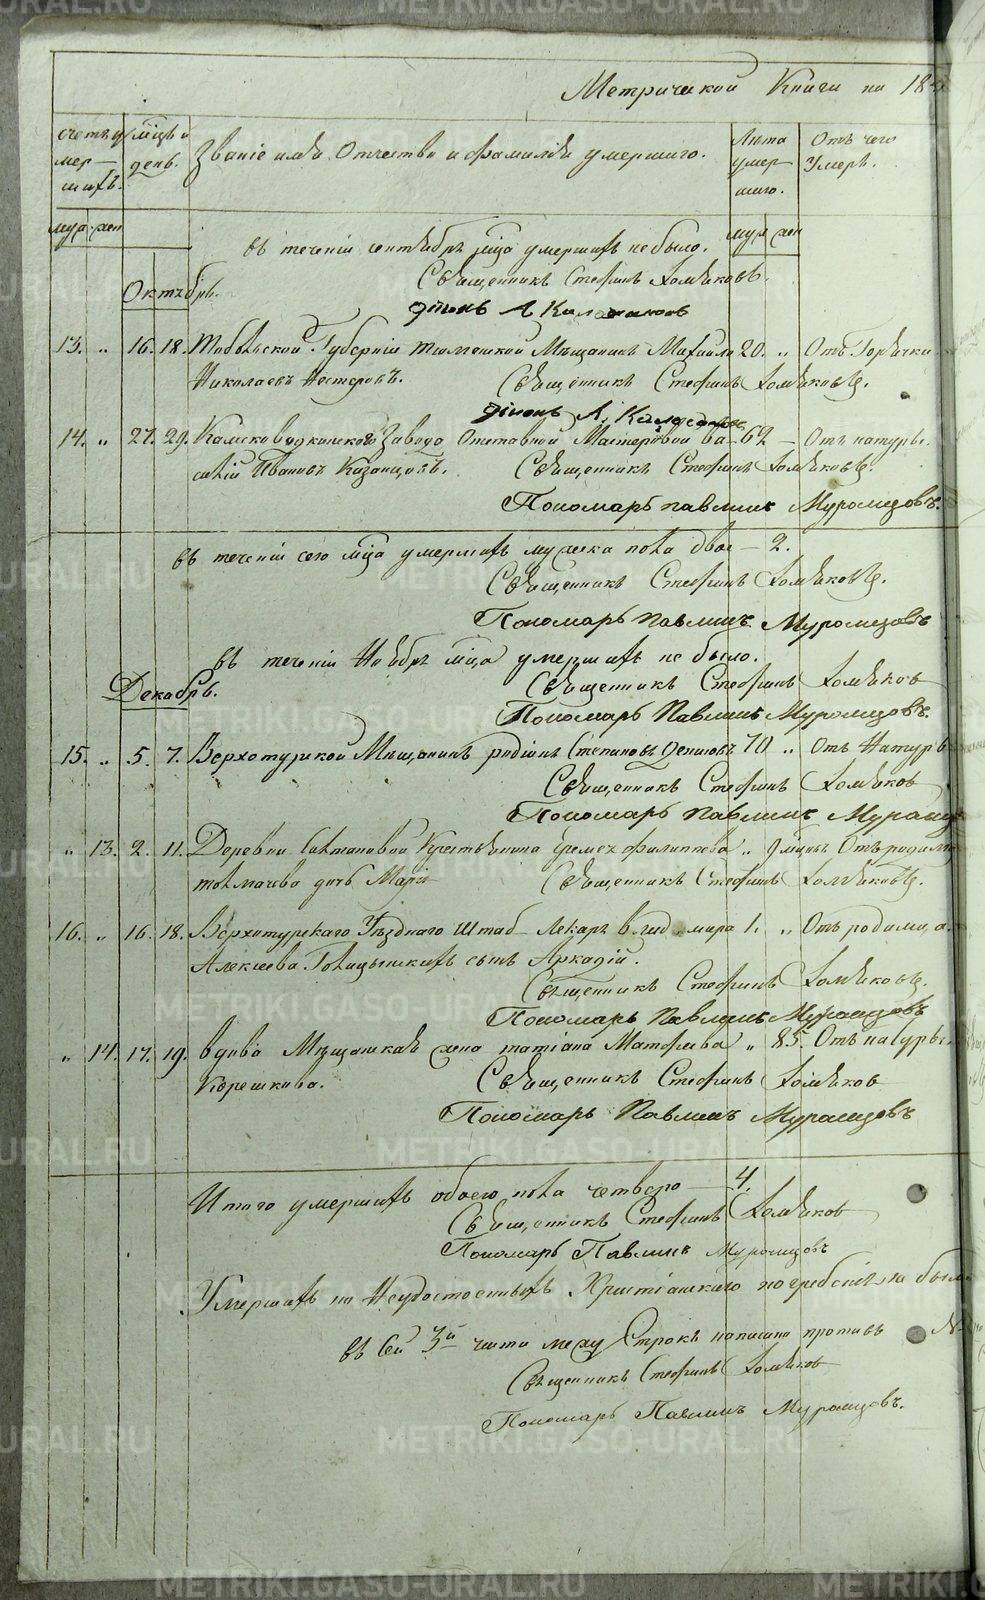 Метрической Книги на 18
счетъ у мер- шихъ.
мѣсяцъ и день.
Званіе имя Отчество и фамилія умершаго.
Лѣта умер- шаго.
Отъ чего умеръ.
муж. жен
муж жен
въ теченіи сентября мца умершихъ не было.
Священникъ Стефанъ Хомяковъ.
дьконъ А
Октябрь.
13. „ 16. 18. Тобольской Губерніи Тюменской Мѣщанинъ Михайло 20. „ Отъ Горячки
Николаевъ Нестеровъ. Священникъ Стефанъ Хомяковъ.
дьконъ А.
14. „ 27. 29. Камсководкинскаго Завода Отставной Мастеровой Ва- 62 — Отъ натуры.
силій Ивановъ Казанцовъ. Священникъ Стефанъ Хомяковъ.
Пономарь Павлинъ Муромцовъ.
въ теченіи сего мца умершихъ мужска пола двое — 2.
Священникъ Стефанъ Хомяковъ.
Пономарь Павлинъ Муромцовъ
въ теченіи Ноября мца умершихъ не было.
Священникъ Стефанъ Хомяковъ
Декабрь.
Пономарь Павлинъ Муромцовъ.
15. „ 5. 7. Верхотурской Мѣщанинъ Родіонъ Степановъ 70 „ Отъ Натуры
Священникъ Стефанъ Хомяков
Пономарь Павлинъ Муромц
„ 13. 2. 11. Деревни Крестьянина Еремея Филиппова „ 9 мцовъ Отъ родим
Толмачева дочь Марія Священникъ Стефанъ Хомяковъ.
16. „ 16. 18. Верхотурскаго Уѣзднаго Штаб- Лекаря Владимира 1. „ Отъ родимца.
Алексѣева сынъ Аркадій.
Священникъ Стефанъ Хомяковъ.
Пономарь Павлинъ Муромцовъ
„ 14. 17. 19. вдова Мѣщанская жена Татіана Матфіева „ 85. Отъ натуры.
Корешкова. Священникъ Стефанъ Хомяков
Пономарь Павлинъ Муромцовъ
Итого умершихъ обоего пола четверо — 4.
Священникъ Стефанъ Хомяков
Пономарь Павлинъ Муромцовъ
Умершихъ и Неудостоенныхъ Христіанскаго погребенія не было
въ сей 3й части между Строкъ написано противъ №
Священникъ Стефанъ Хомяков
Пономарь Павлинъ Муромцовъ.
METRIKI.GASO-URAL.RU